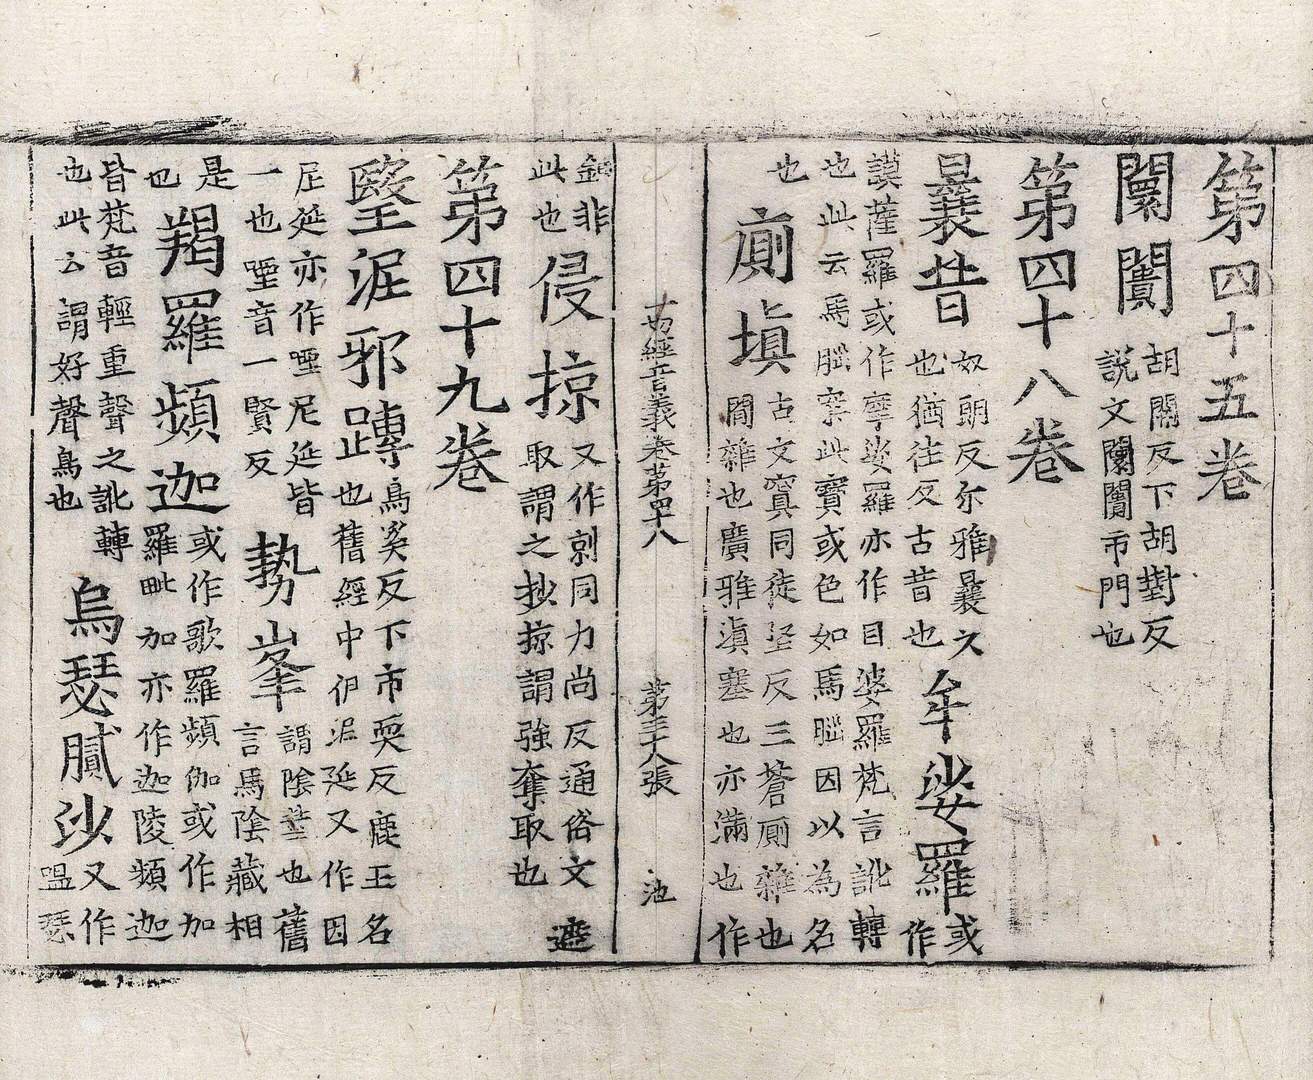 第四十五卷
闤闠
胡關反下胡對反
說文闤闠市門也
第四十八卷
曩昔
奴朗反尒雅曩久
也猶往反古昔也
牟娑羅
或
作
謨薩羅或作摩娑羅亦作目婆羅梵言訛轉
也此云馬腦案此寶或色如馬腦因以為名
也
厠塡
古文窴同徒坚反三蒼厠雜也
間雜也廣雅滇塞也亦滿也作
一切經音義卷第四十八 第三十八張 池
鈿非
此也
侵掠
又作剠同力尚反通俗文遮
取謂之抄掠謂強奪取也
第四十九卷
瑿泥邪蹲
烏奚反下市耎反鹿王名
也舊經中伊泥延又作因
尼延亦作堙尼延皆
一也堙音一賢反
勢峯
謂陰莖也舊
言馬陰藏相
是
也
羯羅頻迦
或作歌羅頻伽或作加
羅毗加亦作迦陵頻迦
皆梵音輕重聲之訛轉
也此云謂好聲鳥也
烏瑟膩沙
又作
嗢瑟